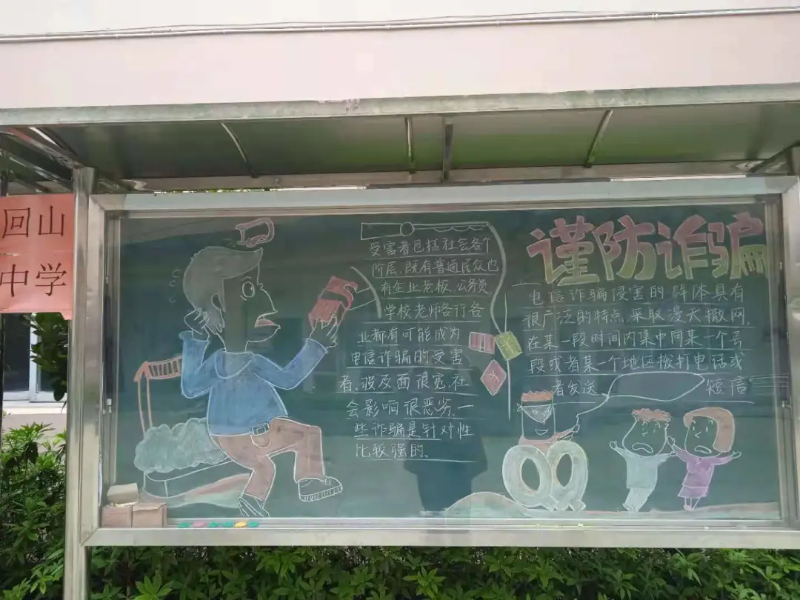 回山
中学
受害者包括社会各个
阶层,既有普通民众也
有企业老板、公务员
学校老师各行各
业都有可能成为
电信诈骗的受害
者,波及面很宽,社
会影响很恶劣,一
些诈骗是针对性
比较强的.
谨防诈骗
电信诈骗侵害的群体具有
很广泛的特点,采取漫天撒网,
在某一段时间内集中向某一个号
段或者某一个地区拨打电话或
者发送 短信
QQ